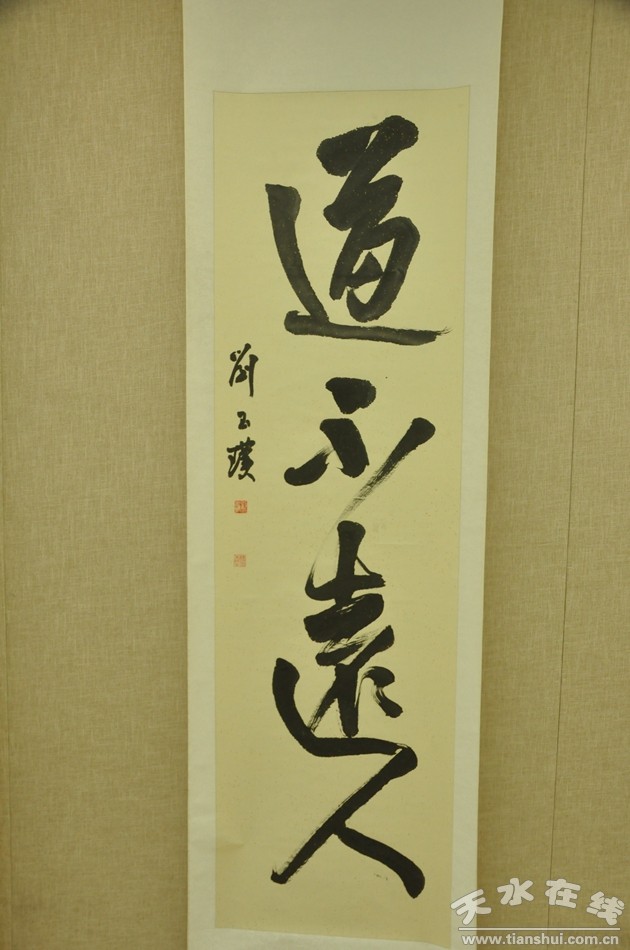 道不遠人
劉玉璞
天水在线
www.tianshui.com.cn